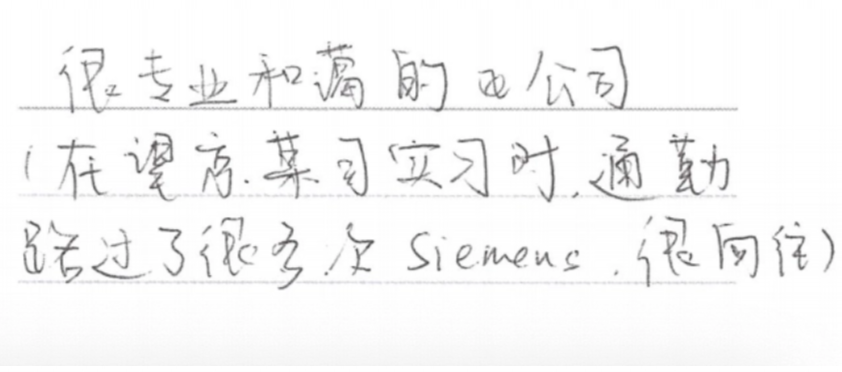 很专业和蔼的公司
(在望京某司实习时,通勤
路过了很多次 Siemens,很向往)